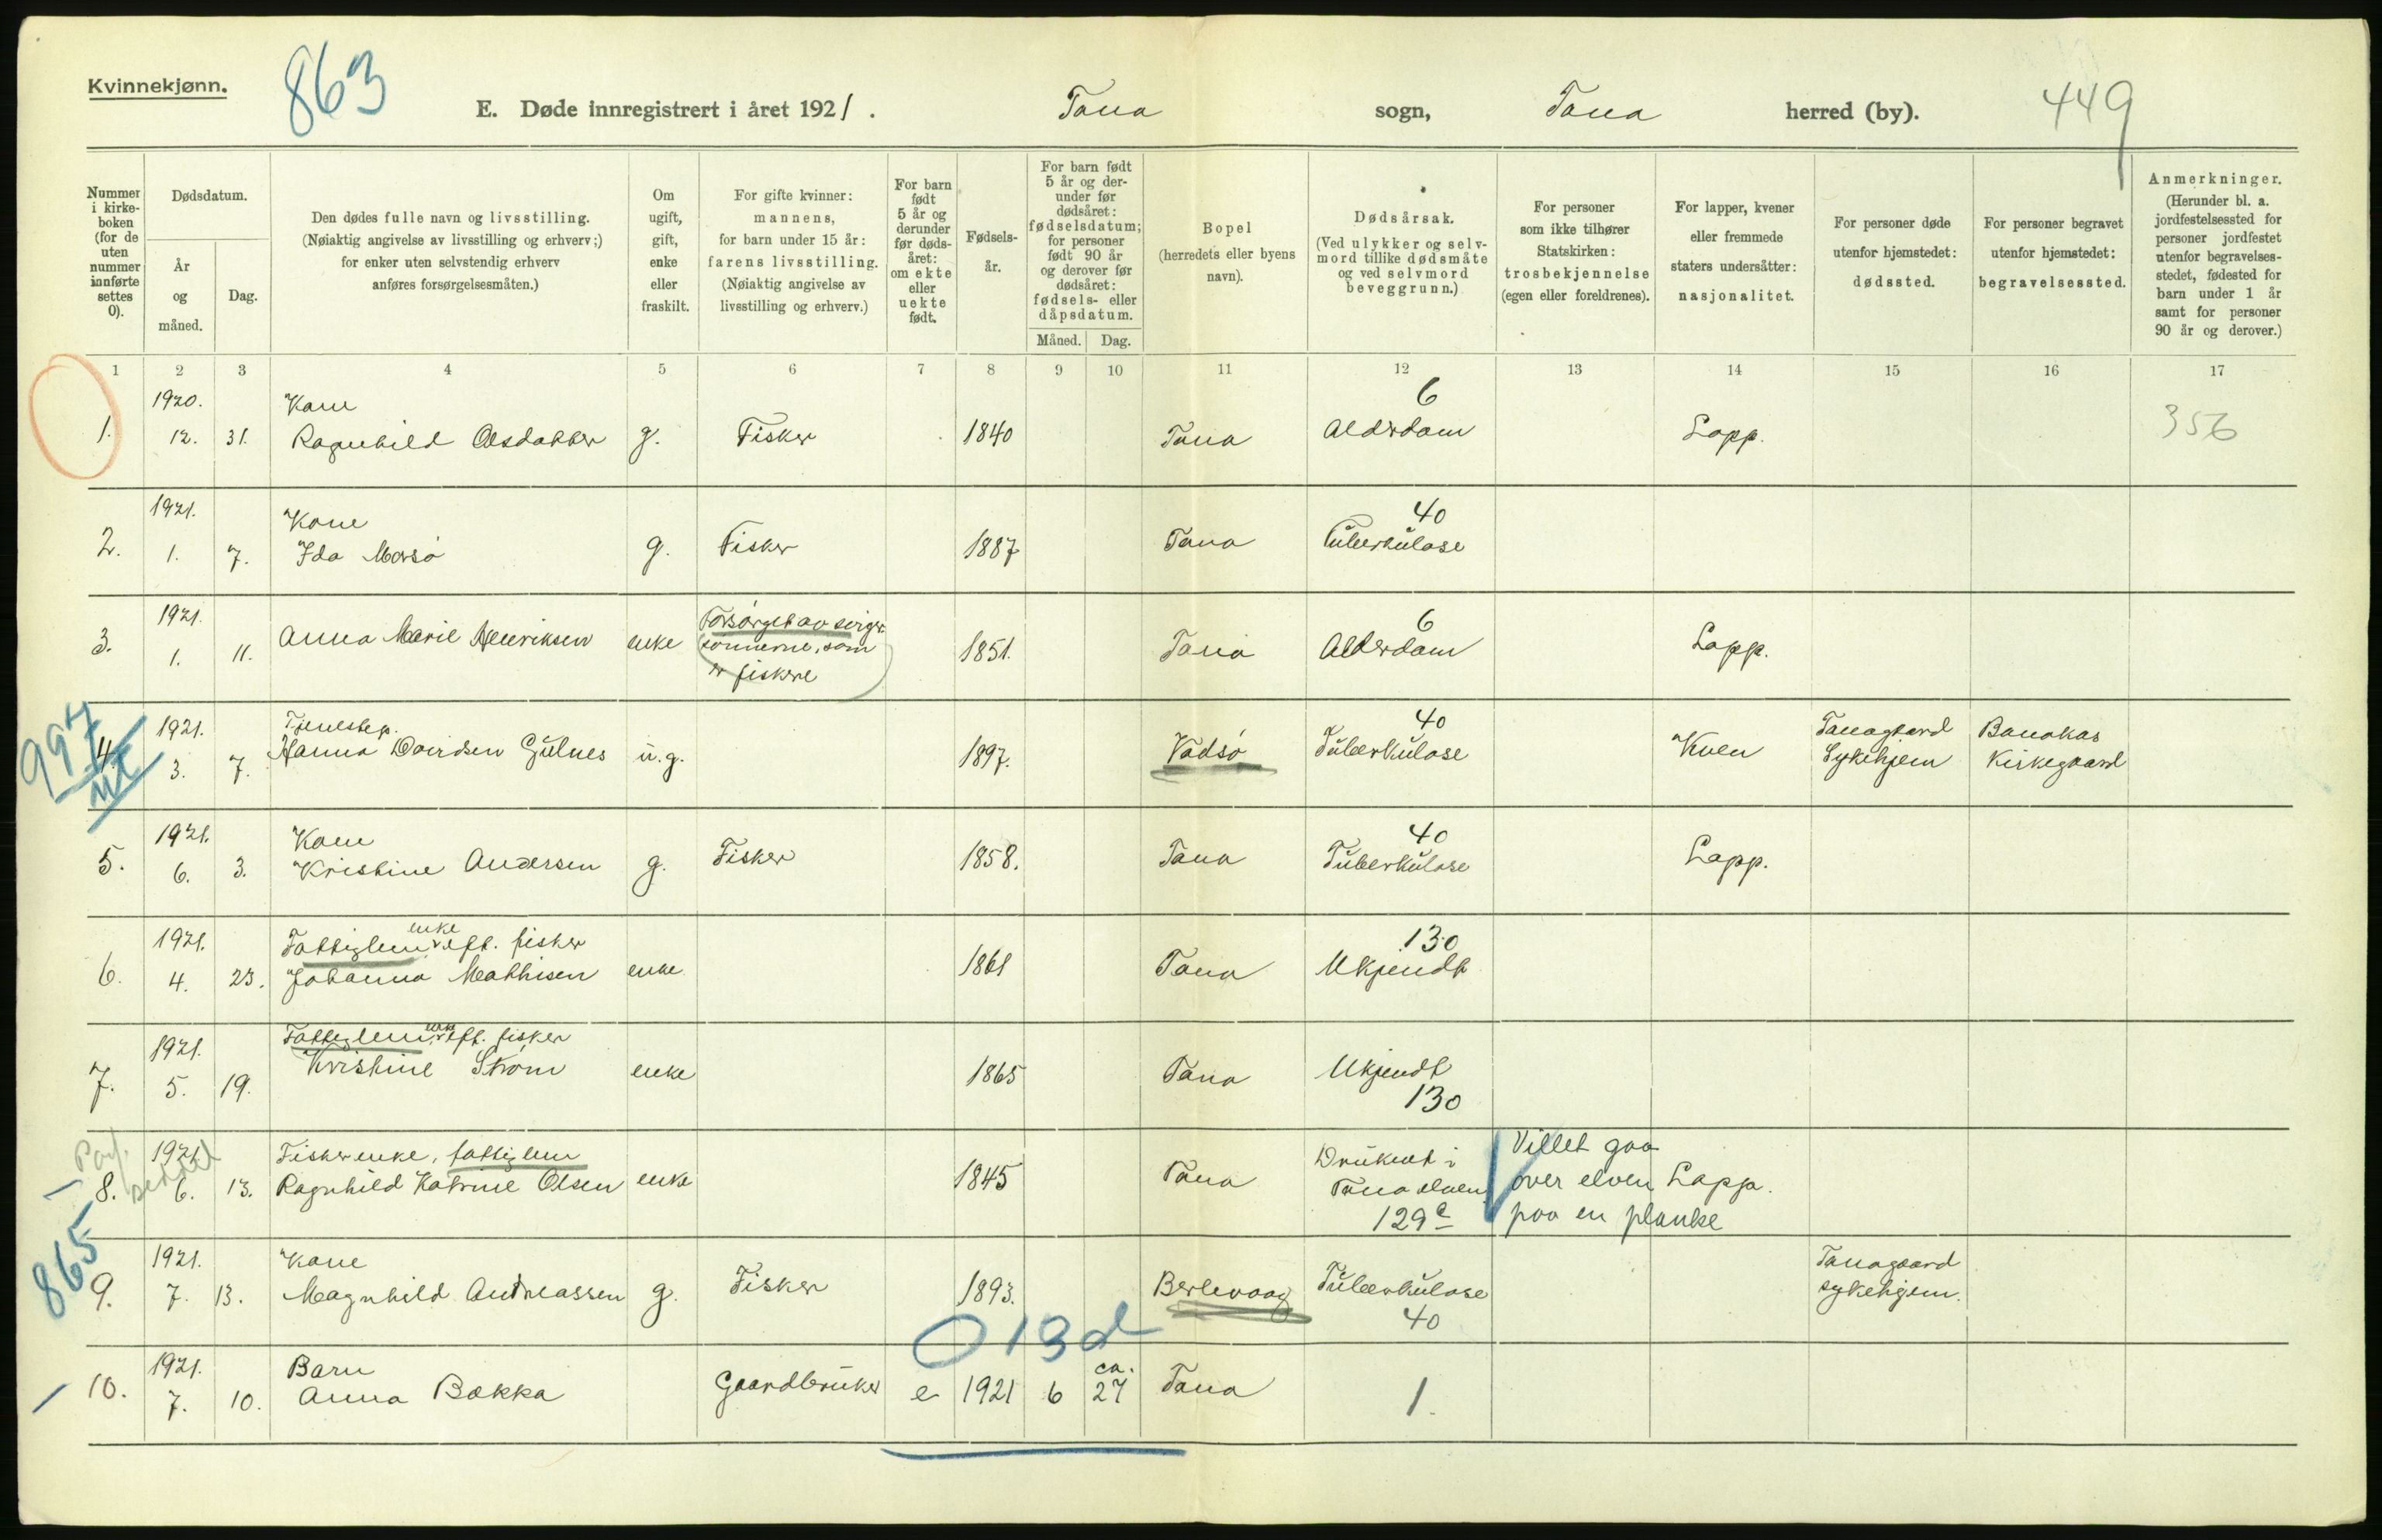 Kvinnekjønn.
863
E. Døde innregistrert i året 1921. Tana sogn, Tana herred (by). 449
Nummer i kirke-boken (for de uten nummer innførte settes 0).
Dødsdatum.
År og måned.
Dag.
Den dødes fulle navn og livsstilling.
(Nøiaktig angivelse av livsstilling og erhverv;)
for enker uten selvstendig erhverv
anføres forsørgelsesmåten.)
Om ugift, gift, enke eller fraskilt.
For gifte kvinner:
mannens,
for barn under 15 år:
farens livsstilling.
(Nøiaktig angivelse av
livsstilling og erhverv.)
For barn født 5 år og derunder før døds-året: om ekte eller uekte født.
Fødsels-år.
For barn født
5 år og der-
under før
dødsåret:
fødselsdatum;
for personer
født 90 år
og derover før
dødsåret:
fødsels- eller
dåpsdatum.
Måned. Dag.
Bopel
(herredets eller byens
navn).
Dødsårsak.
(Ved ulykker og selv-
mord tillike dødsmåte
og ved selvmord
beveggrunn.)
For personer
som ikke tilhører
Statskirken:
trosbekjennelse
(egen eller foreldrenes).
For lapper, kvener
eller fremmede
staters undersåtter:
nasjonalitet.
For personer døde
utenfor hjemstedet:
dødssted.
For personer begravet
utenfor hjemstedet:
begravelsessted.
Anmerkninger.
(Herunder bl. a.
jordfestelsessted for
personer jordfestet
utenfor begravelses-
stedet, fødested for
barn under 1 år
samt for personer
90 år og derover.)
1 2 3 4 5 6 7 8 9 10 11 12 13 14 15 16 17
1920. Kone 6
1. 12. 31. Ragnhild Olsdatter g. Fisker 1840 Tana Alderdom Lapp. 356
1921. Kone 40
2. 1. 7. Ida Morsö g. Fisker 1887 Tana Tuberkulose
1921. Forsørget av sviger 6
3. 1. 11. Anna Marie Henriksen enke sønnerne, som 1851. Tana Alderdom Lapp.
er fiskere
997 1921. Tjenestep. 40 Tanagaard Bonakas
4. 3. 7. Hanna Davidsen Gulnes u.g. 1897. Vadsø Tuberkulose Kven Sykehjem Kirkegaard
ut
1921. Kone 40
5. 6. 3. Kristine Andersen g. Fisker 1858. Tana Tuberkulose Lapp.
enke
1921. Fattiglem eft. fisker 130
6. 4. 23. Johanna Mathisen enke 1861 Tana Ukjendt
enke
1921. Fattiglem eft. fisker
7. 5. 19. Kristine Strøm enke 1865 Tana Ukjendt
130
1921. Fiskerenke, fattiglem Druknet i Villet gaa
8. 6. 13. Ragnhild Katrine Olsen enke 1845 Tana Tana elven over elven Lapp.
129 e paa en planke
865 1921. Kone Tanagaard
9. 7. 13. Magnhild Andreassen g. Fisker 1893. Berlevaag Tuberkulose sykehjem.
40
0 13 d
1921. Barn ca.
10. 7. 10. Anna Bækka Gaardbruker e 1921 6 27 Tana 1.